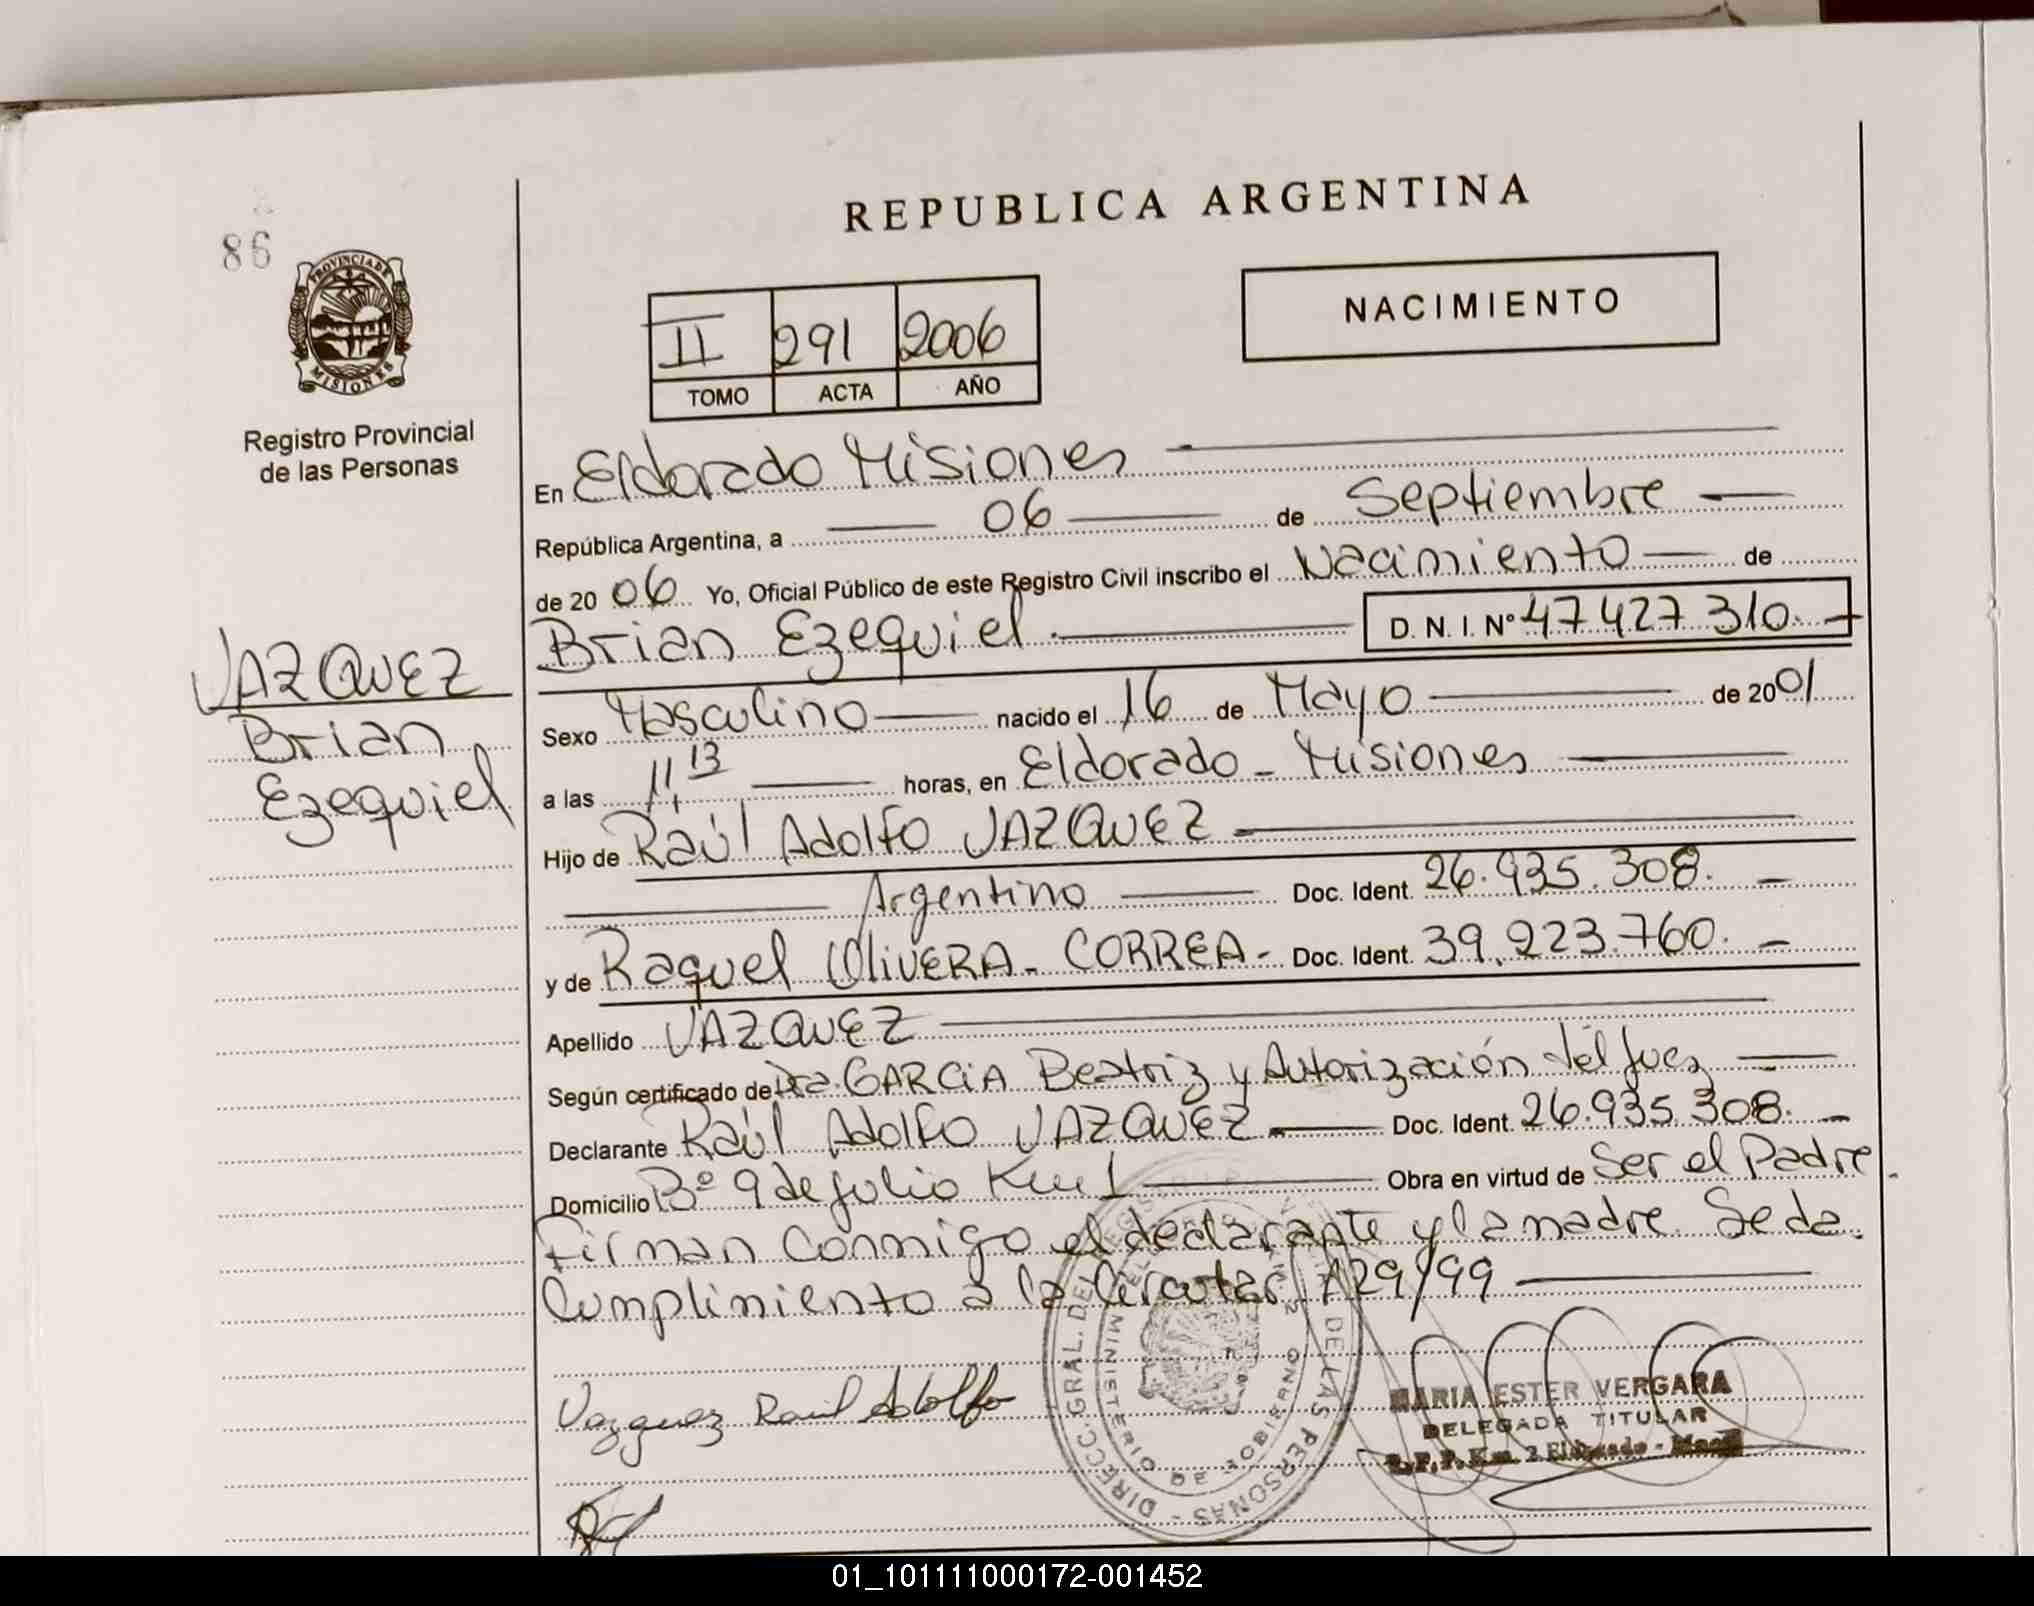 REPUBLICA ARGENTINA
86
PROVINCIA DE MISIONES
Registro Provincial
de las Personas
II 291 2006
TOMO ACTA AÑO
NACIMIENTO
En Eldorado Misiones
República Argentina, a 06 de Septiembre
de 2006 Yo, Oficial Público de este Registro Civil inscribo el Nacimiento de
Brian Ezequiel D. N. I. Nº 47 427 310
VAZQUEZ
Brian
Ezequiel
Sexo Masculino nacido el 16 de Mayo de 2001
a las 11,13 horas, en Eldorado - Misiones
Hijo de Raúl Adolfo VAZQUEZ
Argentino Doc. Ident. 26.935.308.
y de Raquel OLIVERA - CORREA - Doc. Ident. 39.223.760.
Apellido VAZQUEZ
Según certificado de Dra. GARCIA Beatriz y Autorización del Juez
Declarante Raúl Adolfo VAZQUEZ Doc. Ident. 26.935.308.
Domicilio Bº 9 de Julio Km 1 Obra en virtud de Ser el Padre.
Firman conmigo el declarante y la madre. Se da
Cumplimiento a la Circular 129/99
Vazquez Raul Adolfo
DIRECC. GRAL. DEL REGISTRO DE LAS PERSONAS -
MINISTERIO DE GOBIERNO
MARIA ESTER VERGARA
DELEGADA TITULAR
R.P.P. Km. 2 Eldorado - Mnes
01_101111000172-001452